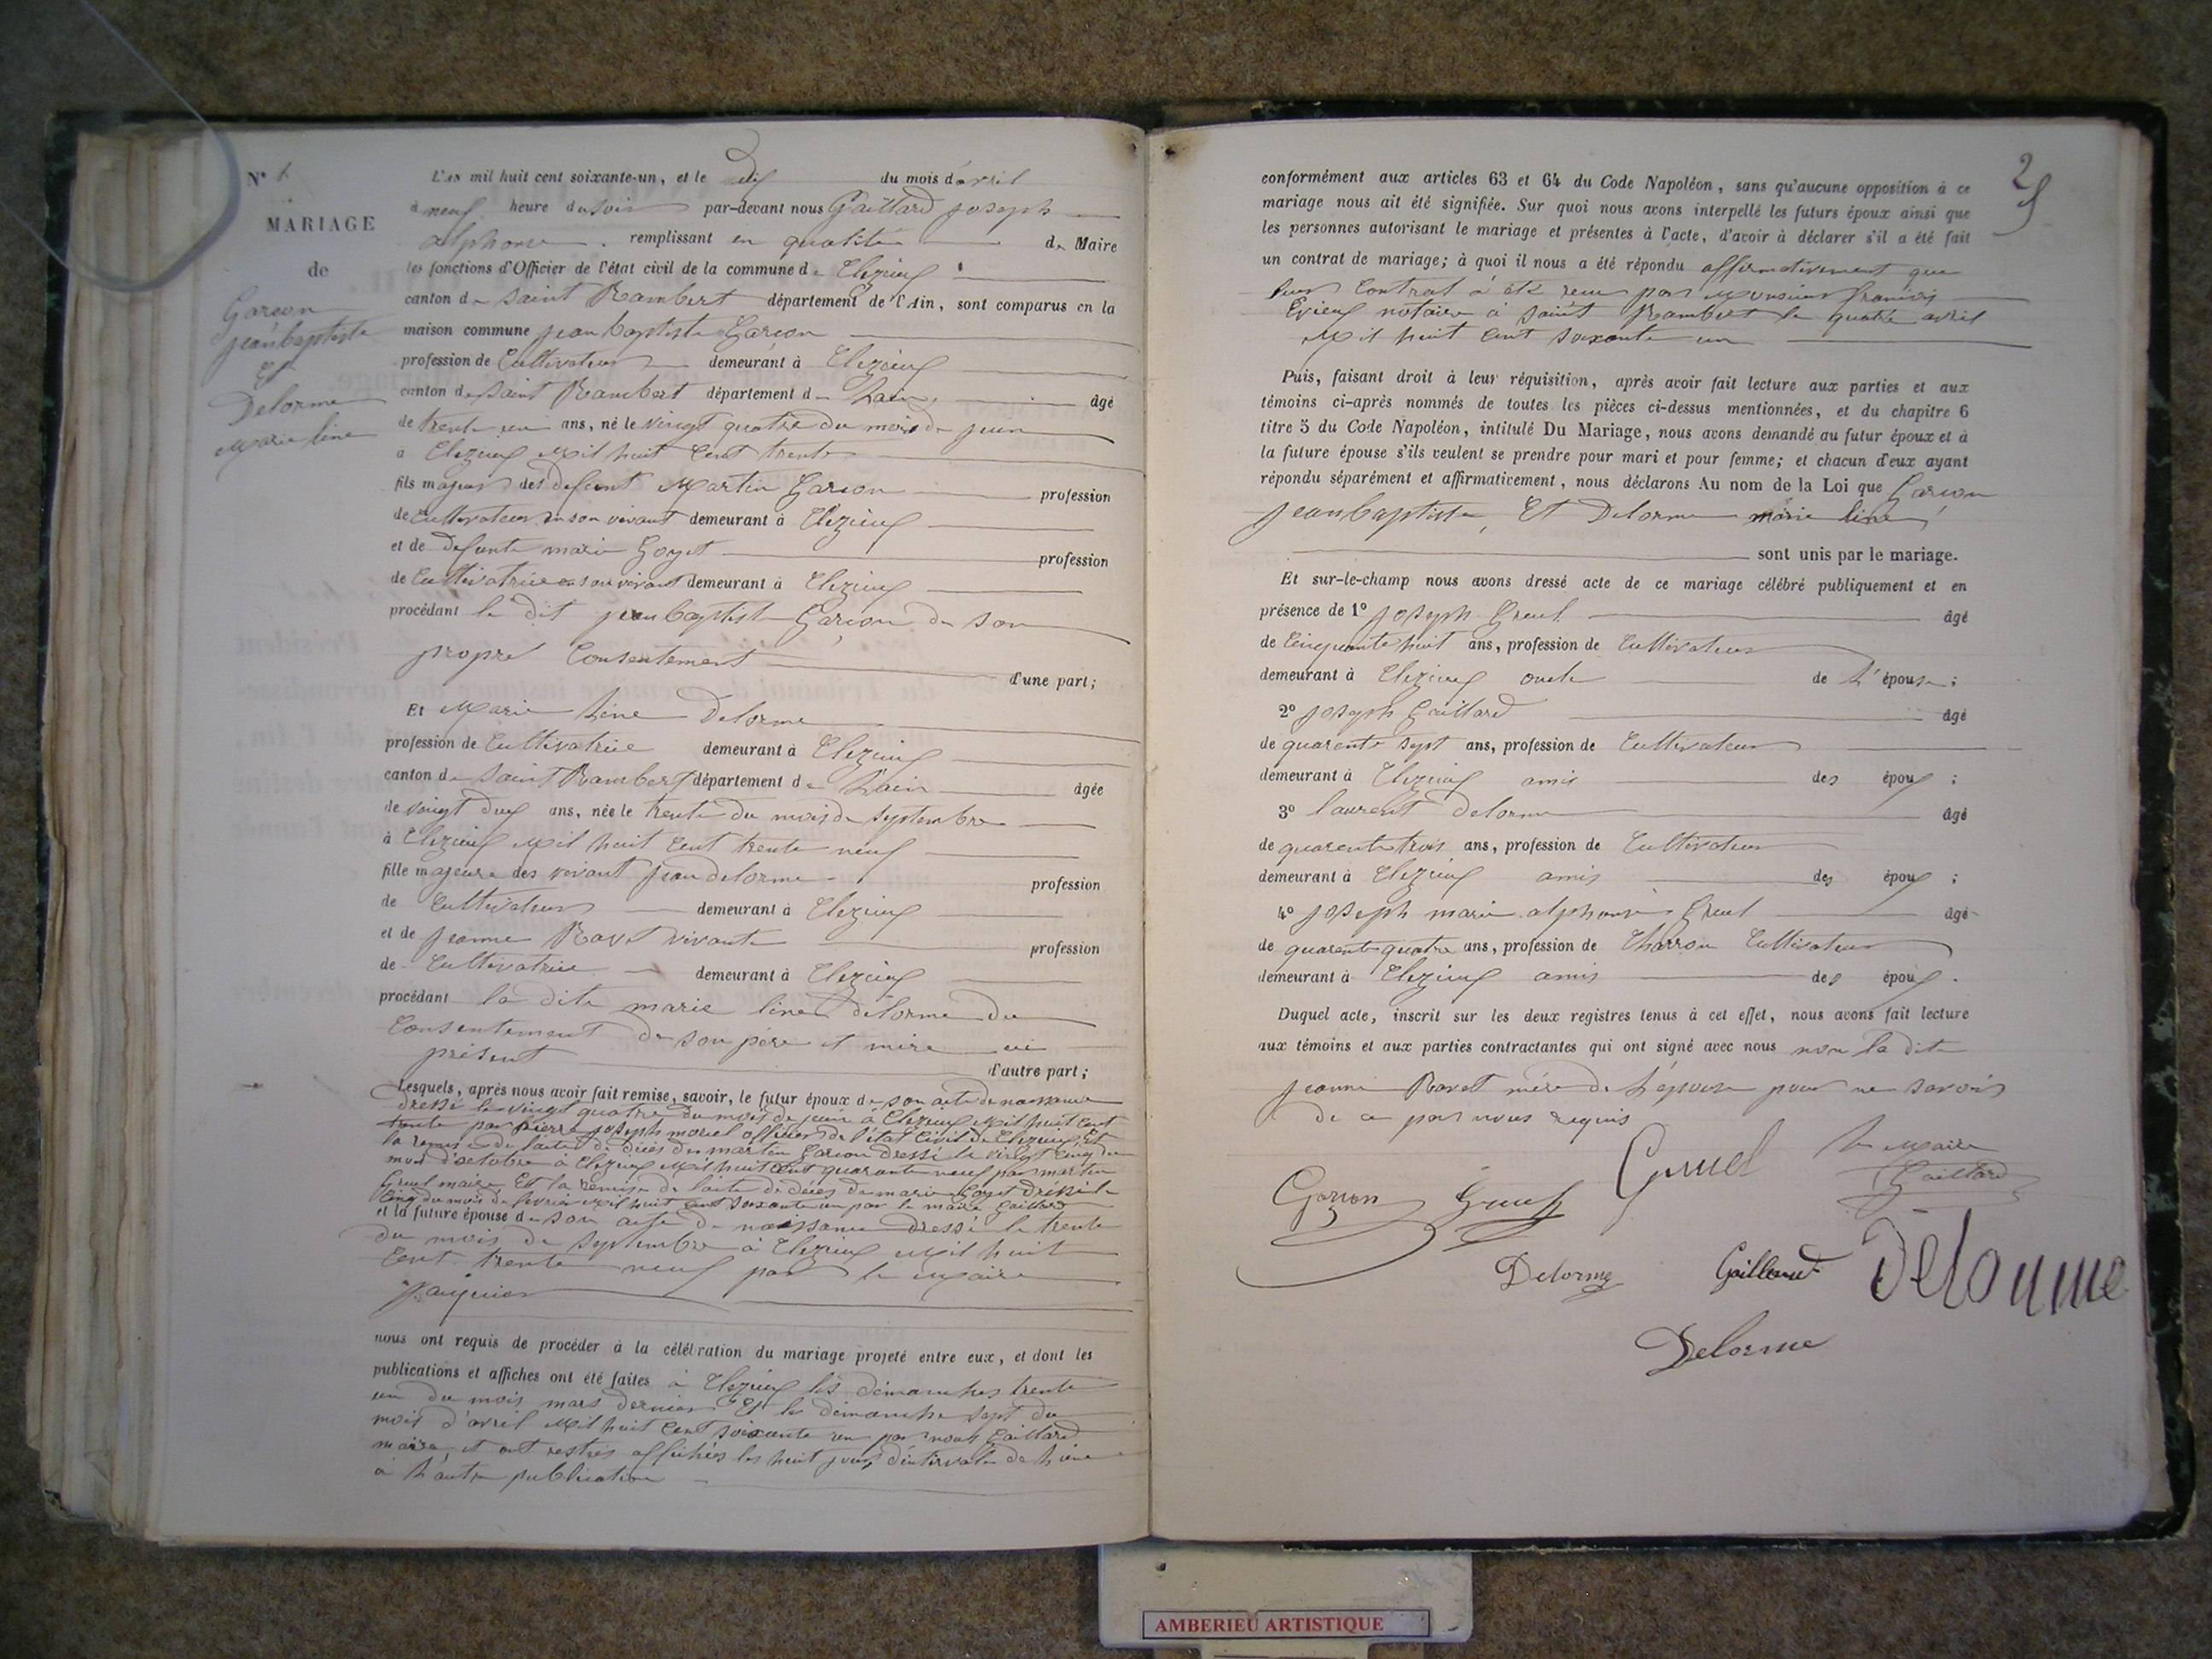 N° 1
MARIAGE
de
Garcon
jean baptiste
Et
Delorme
Marie line
L'an mil huit cent soixante-un, et le dix du mois d'avril
à neuf heure du soir par-devant nous Gaillard joseph
alphonse remplissant en qualité de Maire
les fonctions d'Officier de l'état civil de la commune de Clezieux
canton de Saint Rambert département de l'Ain, sont comparus en la
maison commune jean baptiste Garcon
profession de Cultivateur demeurant à Clezieux
canton de Saint Rambert département de Lain âgé
de trente un ans, né le vingt quatre du mois de juin
à Clezieux Mil huit Cent trente
fils majeur des defunt Martin Garcon profession
de Cultivateur en son vivant demeurant à Clezieux
et de defunte marie Goyet profession
de Cultivatrice en son vivant demeurant à Clezieux
procédant le dit jean baptiste Garcon de son
propre Consentement
d'une part;
Et Marie Line Delorme
profession de Cultivatrice demeurant à Clezieux
canton de Saint Rambert département de Lain âgée
de vingt deux ans, née le trente du mois de Septembre
à Clezieux Mil huit Cent trente neuf
fille majeure des vivant jean delorme profession
de Cultivateur demeurant à Clezieux
et de jeanne Ravet vivante profession
de Cultivatrice demeurant à Clezieux
procédant la dite marie line delorme du
Consentement de son père et mère ici
présent
d'autre part;
Lesquels, après nous avoir fait remise, savoir, le futur époux de son acte de naissance
dressé le vingt quatre du mois de juin à Clezieux Mil huit Cent
trente par pierre joseph morel officier de l'état Civil de Clezieux, Et
la remise de l'acte de décès du martin Garcon dressé le vingt cinq du
mois d'octobre à Clezieux Mil huit Cent quarante neuf par martin
Gruel maire, Et la remise de l'acte de décès de marie Goyet dressé le
cinq du mois de fevrier Mil huit cent Soixante un par le maire Gaillard
et la future épouse de son acte de naissance dressé le trente
du mois de Septembre à Clezieux Mil huit
Cent trente neuf par le Maire
nous ont requis de procéder à la célébration du mariage projeté entre eux, et dont les
publications et affiches ont été faites à Clezieux les dimanches trente
un du mois mars dernier Et le dimanche sept du
mois d'avril Mil huit Cent soixante un par nous Gaillard
maire et ont restés affichées les huit jours d'intervalle de l'une
à L'autre publication
25
conformément aux articles 63 et 64 du Code Napoléon, sans qu'aucune opposition à ce
mariage nous ait été signifiée. Sur quoi nous avons interpellé les futurs époux ainsi que
les personnes autorisant le mariage et présentes à l'acte, d'avoir à déclarer s'il a été fait
un contrat de mariage; à quoi il nous a été répondu affirmativement que
leur Contrat à été reçu par Monsieur francois
notaire à Saint Rambert le quatre avril
Mil huit Cent Soixante un
Puis, faisant droit à leur réquisition, après avoir fait lecture aux parties et aux
témoins ci-après nommés de toutes les pièces ci-dessus mentionnées, et du chapitre 6
titre 5 du Code Napoléon, intitulé Du Mariage, nous avons demandé au futur époux et à
la future épouse s'ils veulent se prendre pour mari et pour femme; et chacun d'eux ayant
répondu séparément et affirmativement, nous déclarons Au nom de la Loi que Garcon
jean baptiste, Et Delorme marie line
sont unis par le mariage.
Et sur-le-champ nous avons dressé acte de ce mariage célébré publiquement et en
présence de 1° joseph Gruel âgé
de Cinquante huit ans, profession de Cultivateur
demeurant à Clezieux oncle de L'épouse;
2° joseph Gaillard âgé
de quarente sept ans, profession de Cultivateur
demeurant à Clezieux amis des époux;
3° laurent delorme âgé
de quarente trois ans, profession de Cultivateur
demeurant à Clezieux amis des époux;
4° joseph marie alphonse Gruel âgé
de quarente quatre ans, profession de Charron Cultivateur
demeurant à Clezieux amis des époux.
Duquel acte, inscrit sur les deux registres tenus à cet effet, nous avons fait lecture
aux témoins et aux parties contractantes qui ont signé avec nous non la dite
jeanne Ravet mère de L'épouse pour ne savoir
de ce par nous requis
Le Maire
Garcon Gruel Gruel Gaillard
Delorme Gaillard Delorme
Delorme
AMBERIEU ARTISTIQUE